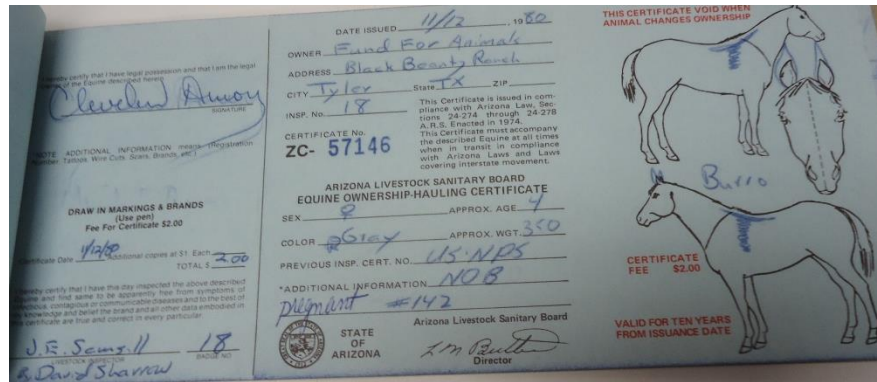 I hereby certify that I have legal possession and that I am the legal
owner of the Equine described herein.
Cleveland Amory
SIGNATURE
NOTE ADDITIONAL INFORMATION means: (Registration
Number, Tattoos, Wire Cuts, Scars, Brands, etc.)
DRAW IN MARKINGS & BRANDS
(Use pen)
Fee For Certificate $2.00
Certificate Date 11/12/80 Additional copies at $1. Each
TOTAL $ 2.00
I hereby certify that I have this day inspected the above described
Equine and find same to be apparently free from symptoms of
infectious, contagious or communicable diseases and to the best of
my knowledge and belief the brand and all other data embodied in
this certificate are true and correct in every particular.
J.E. 18
LIVESTOCK INSPECTOR BADGE NO.
David Sharrow
DATE ISSUED 11/12, 1980
OWNER Fund For Animals
ADDRESS Black Beauty Ranch
CITY Tyler State TX ZIP
INSP. No. 18
CERTIFICATE No.
ZC- 57146
This Certificate is issued in com-
pliance with Arizona Law, Sec-
tions 24-274 through 24-278
A.R.S. Enacted in 1974.
This Certificate must accompany
the described Equine at all times
when in transit in compliance
with Arizona Laws and Laws
covering interstate movement.
ARIZONA LIVESTOCK SANITARY BOARD
EQUINE OWNERSHIP-HAULING CERTIFICATE
SEX ♀ APPROX. AGE 4
COLOR Gray APPROX. WGT. 350
PREVIOUS INSP. CERT. NO. US-NPS
*ADDITIONAL INFORMATION NOB
pregnant #142
STATE
OF
ARIZONA
Arizona Livestock Sanitary Board
Director
THIS CERTIFICATE VOID WHEN
ANIMAL CHANGES OWNERSHIP
Burro
CERTIFICATE
FEE $2.00
VALID FOR TEN YEARS
FROM ISSUANCE DATE